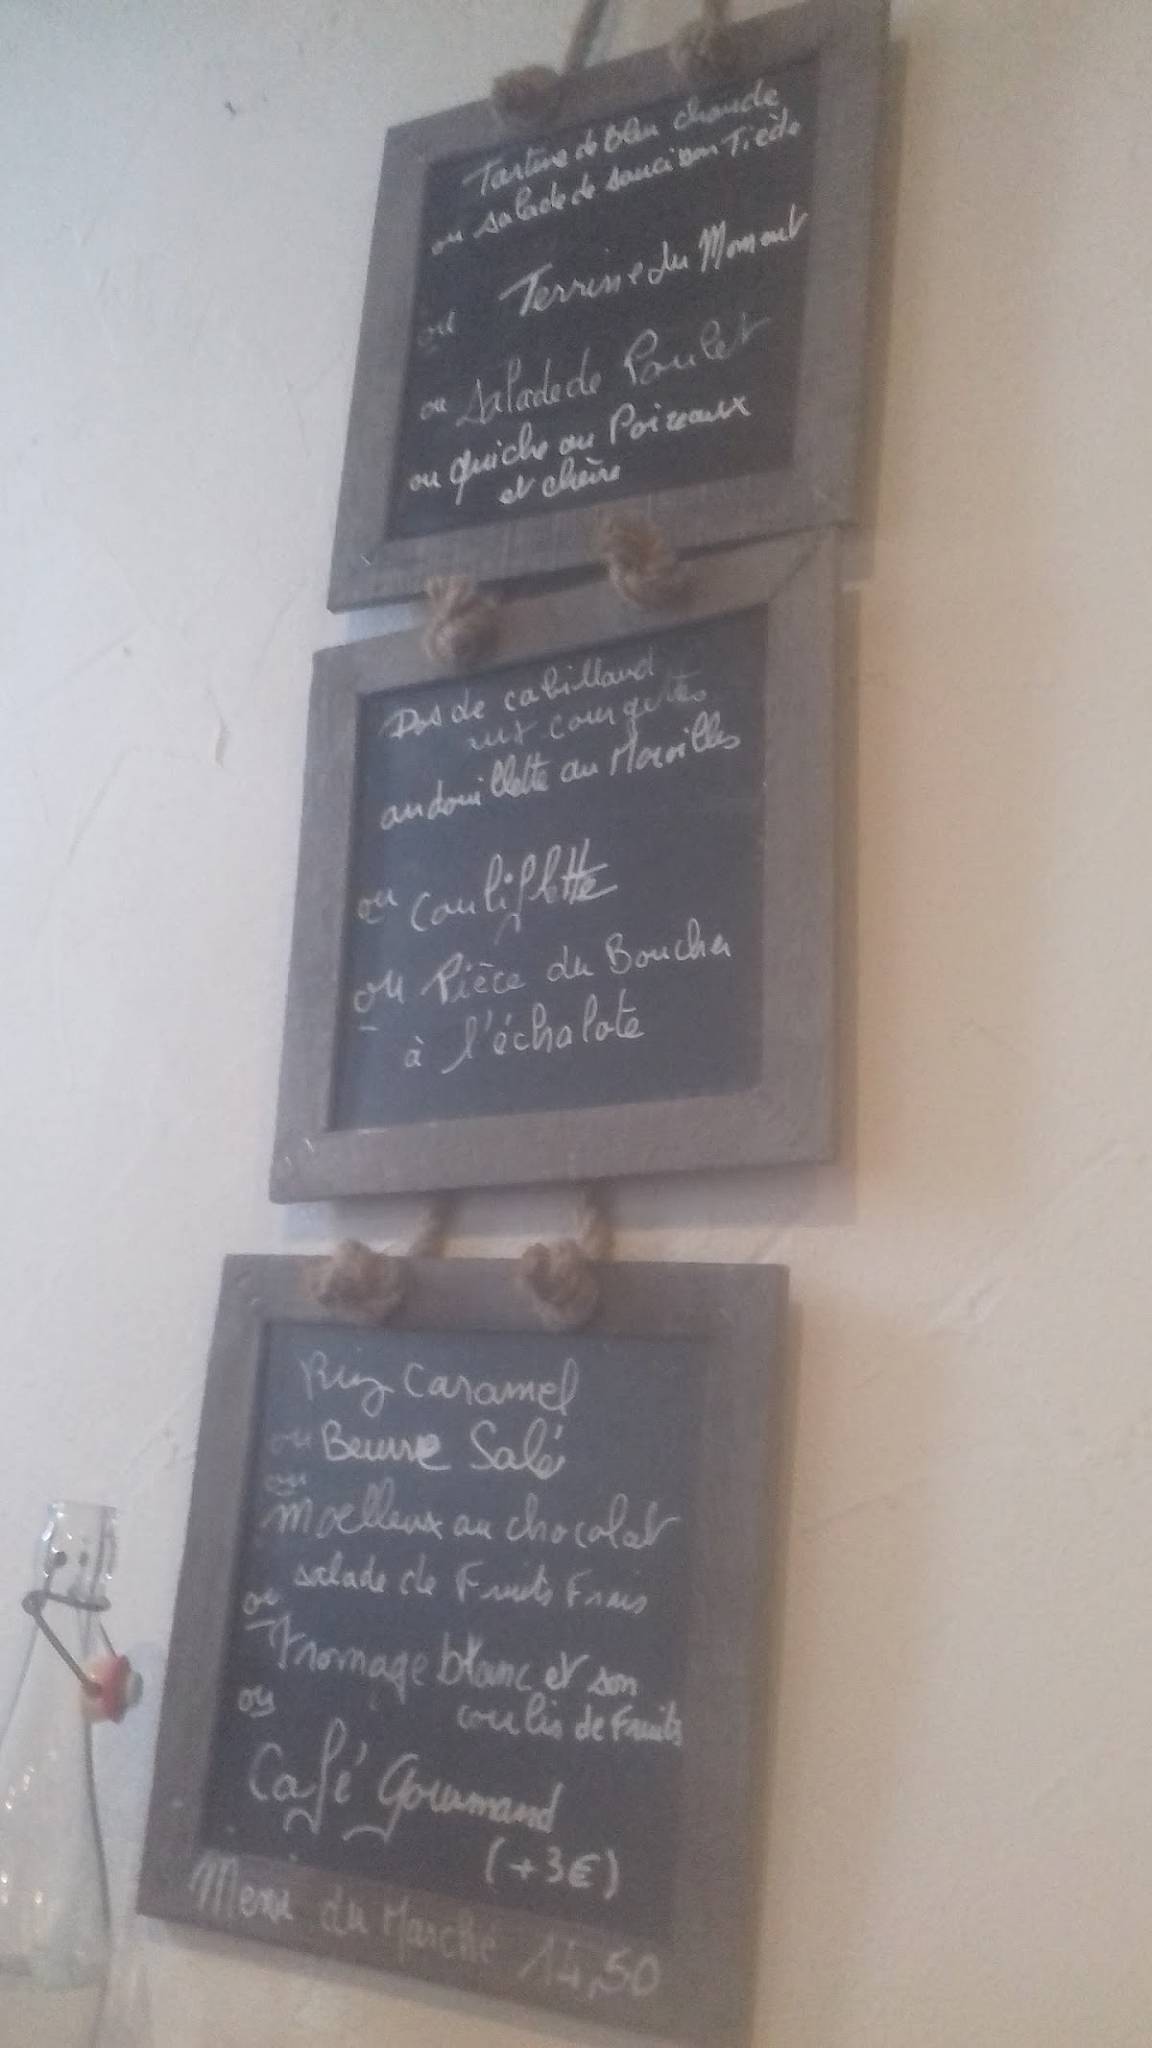 Tartine de Bleu chaude
ou salade de saucisson Tiède
ou Terrine du Moment
ou Salade de Poulet
ou quiche au Poireaux
et chèvre
Dos de cabillaud
aux courgettes
andouillette au Maroilles
ou Couliflette
ou Pièce du Boucher
à l'échalote
Riz Caramel
ou Beurre Salé
ou
Moelleux au chocolat
salade de Fruits Frais
ou
Fromage blanc et son
ou coulis de Fruits
Café Gourmand
(+3€)
Menu du Marché 14,50